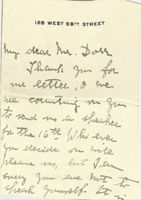 128 WEST 59TH STREET
My dear Mrs. Dorr
Thank you for
letter, & we
are counting on you
to send us a speaker
for the 16th. Who ever
you decide on will
please us, but I am
sorry you are not to
speak yourself.